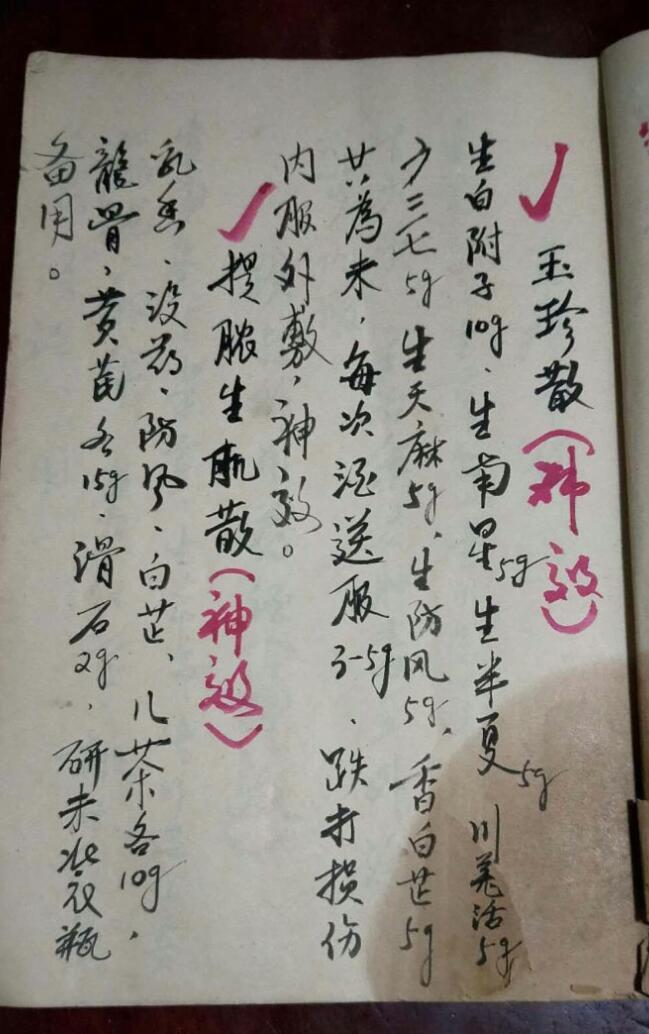 玉珍散（神效）
生白附子10g、生南星5g生半夏5g川羌活5g
少三七5g生天麻5g、生防风5g、香白芷5g
共為末，每次酒送服3-5g、跌打损伤
内服外敷，神效。
提脓生肌散（神效）
乳香、没药、防风、白芷、儿茶各10g，
龍骨，黄芪各15g、滑石2g，研末装瓶
备用。